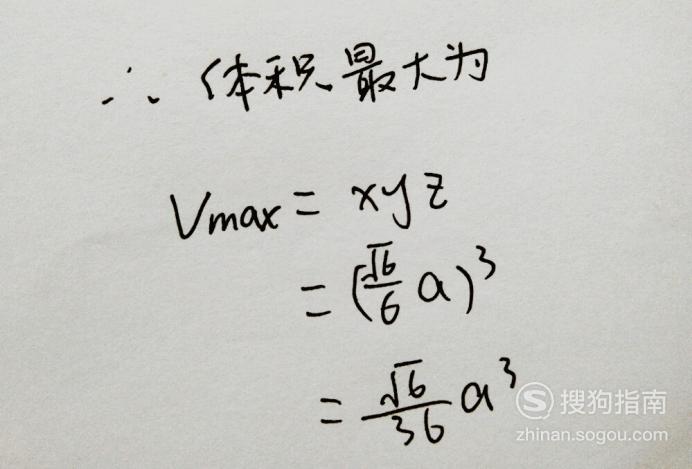 ∴ 体积最大为
Vmax = xyz
= (√6/6 a)³
= √6/36 a³
S 搜狗指南
zhinan.sogou.com